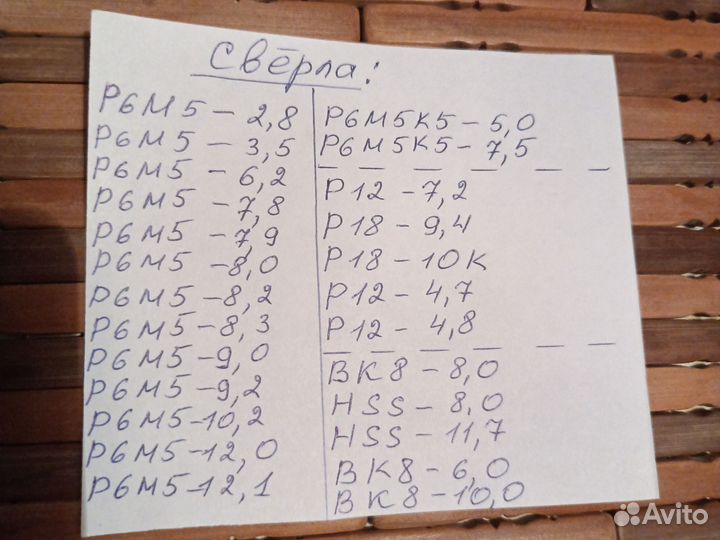 Свёрла:
Р6М5 – 2,8
Р6М5 – 3,5
Р6М5 – 6,2
Р6М5 – 7,8
Р6М5 – 7,9
Р6М5 – 8,0
Р6М5 – 8,2
Р6М5 – 8,3
Р6М5 – 9,0
Р6М5 – 9,2
Р6М5 – 10,2
Р6М5 – 12,0
Р6М5 – 12,1
Р6М5К5 – 5,0
Р6М5К5 – 7,5
Р12 – 7,2
Р18 – 9,4
Р18 – 10К
Р12 – 4,7
Р12 – 4,8
ВК8 – 8,0
HSS – 8,0
HSS – 11,7
ВК8 – 6,0
ВК8 – 10,0
Avito